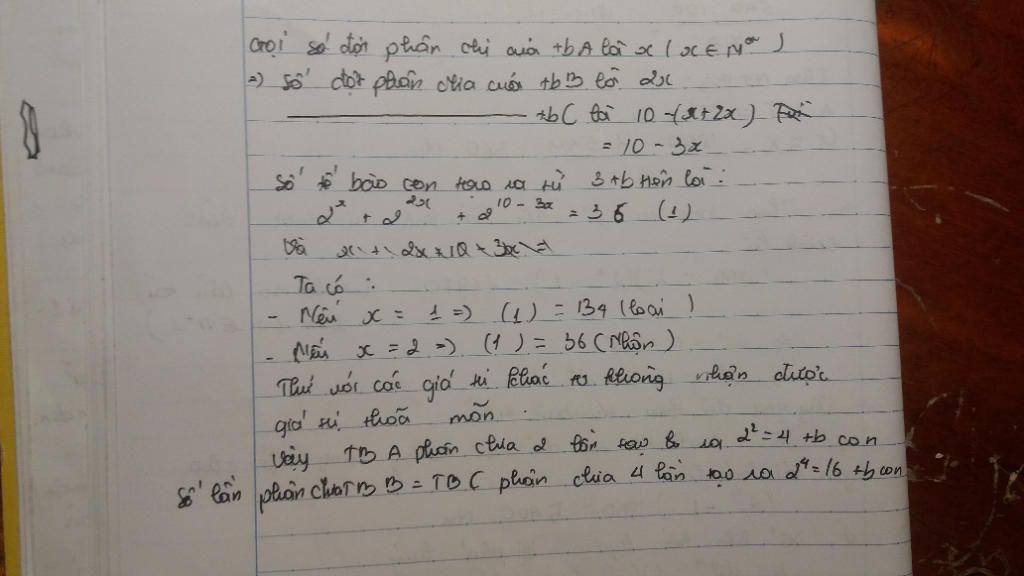 Gọi số đợt phân chi của tbA là x ( x ∈ N* )
=> Số đợt phân chia của tbB là 2x
———— tbC là 10 - (x+2x)
= 10 - 3x
Số tế bào con tạo ra từ 3 tb trên là :
2^x + 2^2x + 2^10 - 3x = 36 (1)
Và x + 2x + 10 - 3x =
Ta có :
- Nếu x = 1 => (1) = 134 (loại)
- Nếu x = 2 => (1) = 36 (Nhận)
Thử với các giá trị khác ta không nhận được
giá trị thoã mãn .
Vậy TB A phân chia 2 lần tạo ra 2^2 = 4 tb con
Số lần phân chia TB B = TB C phân chia 4 lần tạo ra 2^4 = 16 tb con